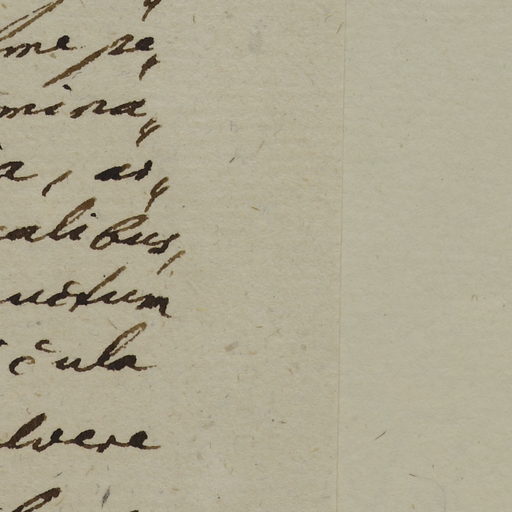 me re„
mina„
a, ar„
calibus,
uctum
cula
lvere